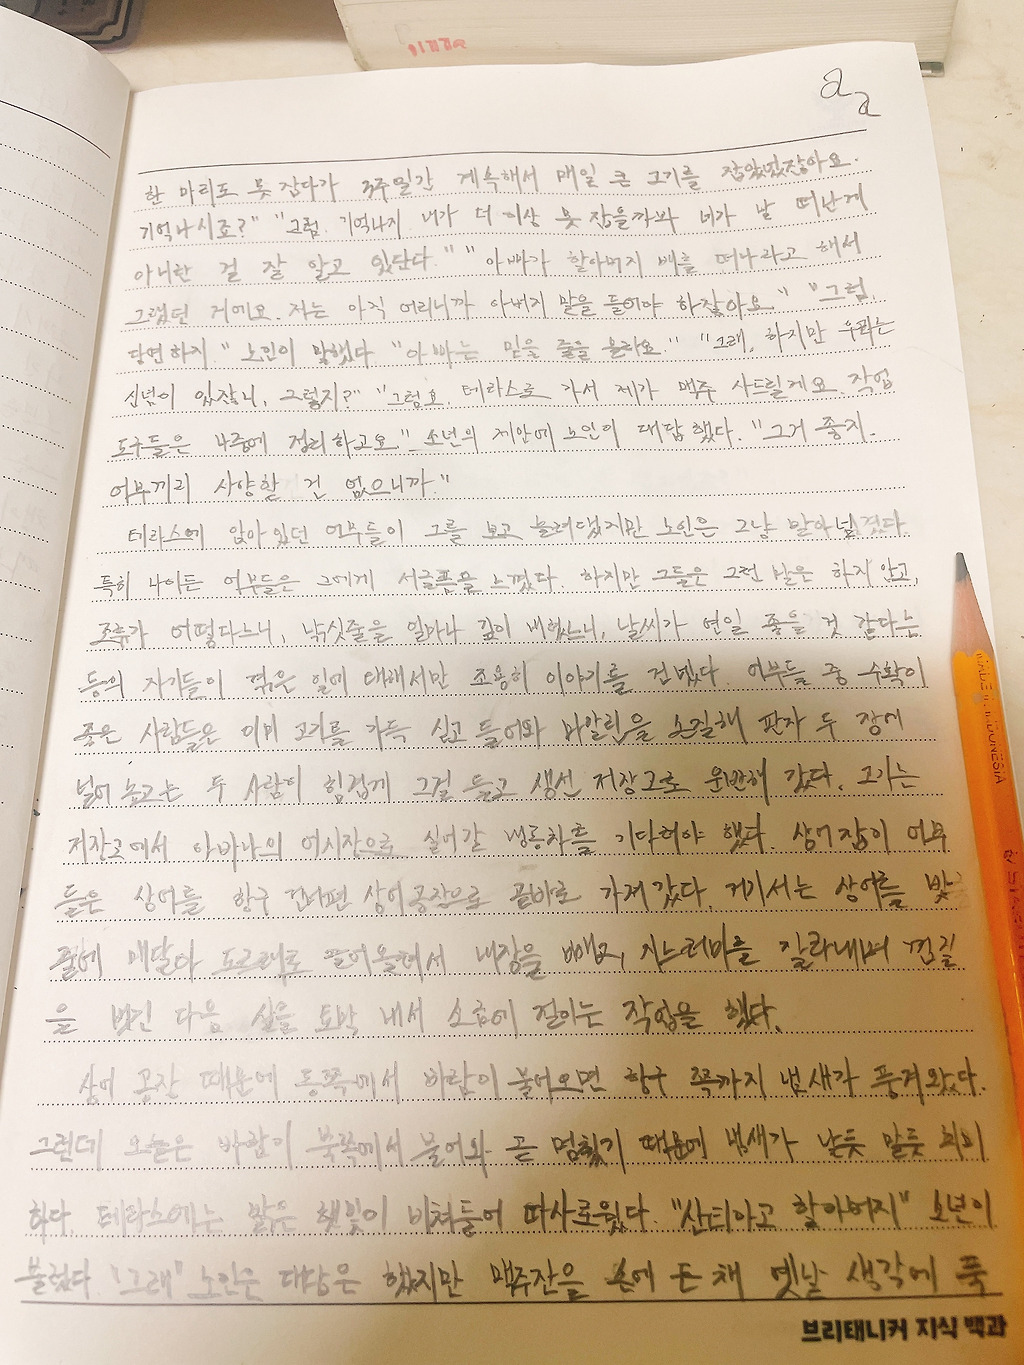 a a
한 마리도 못 잡다가 3주일간 계속해서 매일 큰 고기를 잡았었잖아요.
기억나시죠?" "그럼. 기억나지. 내가 더 이상 못 잡을까봐 네가 날 떠난게
아니란 걸 잘 알고 있단다." "아빠가 할아버지 배를 떠나라고 해서
그랬던 거에요. 저는 아직 어리니까 아버지 말을 들어야 하잖아요." "그럼.
당연하지" 노인이 말했다 "아빠는 믿을 줄을 몰라요." "그래, 하지만 우리는
신념이 있잖니, 그렇지?" "그럼요. 테라스로 가서 제가 맥주 사드릴게요. 작업
도구들은 나중에 정리하고요." 소년의 제안에 노인이 대답했다. "그거 좋지.
어부끼리 사양할 건 없으니까."
테라스에 앉아있던 어부들이 그를 보고 놀려댔지만 노인은 그냥 받아넘겼다
특히 나이든 어부들은 그에게 서글픔을 느꼈다. 하지만 그들은 그런 말은 하지 않고,
조류가 어떻다느니, 낚싯줄을 얼마나 깊이 내렸느니, 날씨가 연일 좋을 것 같다는
등의 자기들이 겪은 일에 대해서만 조용히 이야기를 건넸다. 어부들 중 수확이
좋은 사람들은 이미 고기를 가득 싣고 들어와 마알린을 손질해 판자 두 장에
널어 놓고는 두 사람이 힘겹게 그걸 들고 생선 저장고로 운반해 갔다. 고기는
저장고에서 아바나의 어시장으로 실어갈 냉동차를 기다려야 했다. 상어잡이 어부
들은 상어를 항구 건너편 상어공장으로 곧바로 가져갔다. 거기서는 상어를 밧
줄에 매달아 도르래로 끌어올려서 내장을 빼고, 지느러미를 잘라내며 껍질
을 벗긴 다음 살을 토막 내서 소금에 절이는 작업을 했다.
상어 공장 때문에 동쪽에서 바람이 불어오면 항구 쪽까지 냄새가 풍겨왔다.
그런데 오늘은 바람이 북쪽에서 불어와 곧 멈췄기 때문에 냄새가 날듯 말듯 희미
하다. 테라스에는 맑은 햇빛이 비쳐들어 따사로웠다. "산티아고 할아버지" 소년이
불렀다. "그래" 노인은 대답은 했지만 맥주잔을 손에 든 채 옛날 생각에 푹
브리태니커 지식 백과
MADE IN INDONESIA